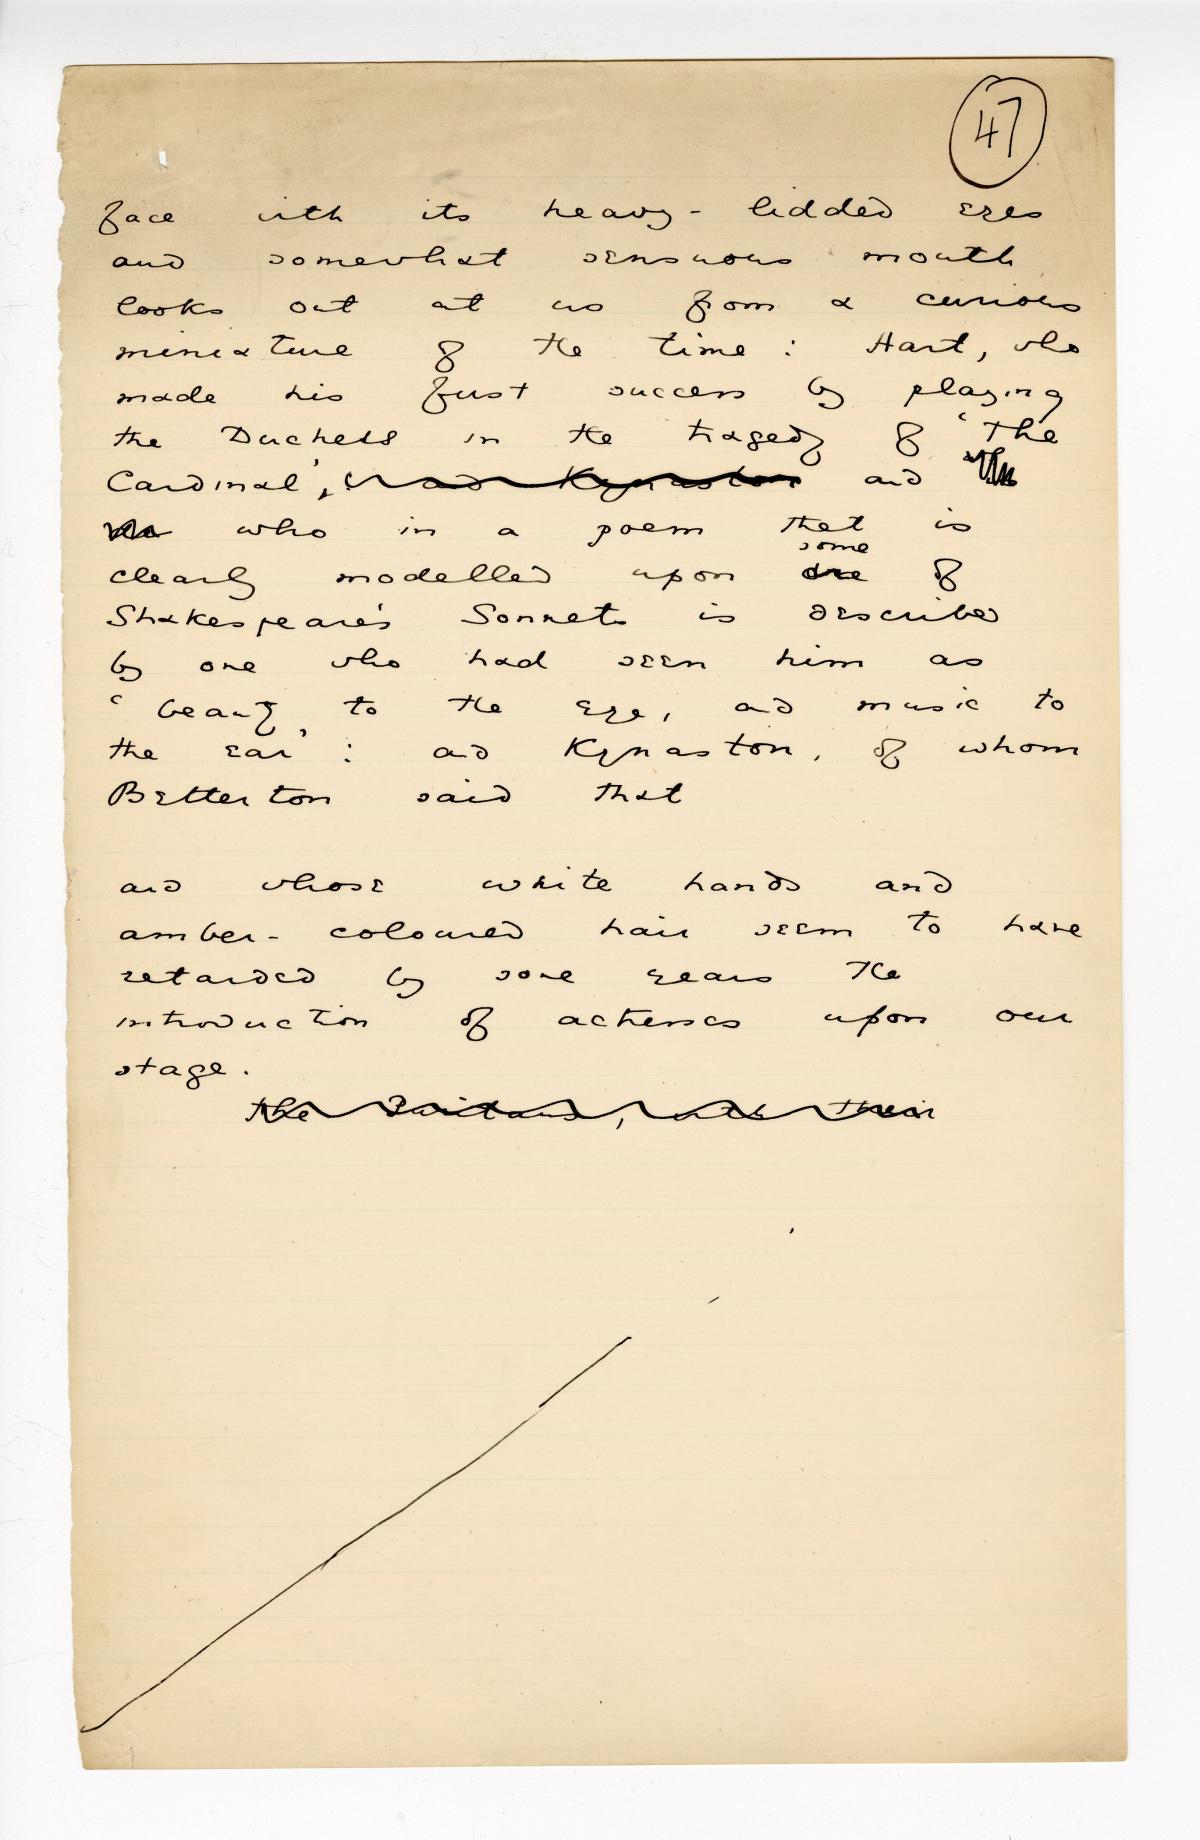 47
face with its heavy-lidded eyes
and somewhat sensuous mouth
looks out at us from a curious
miniature of the time : Hart, who
made his first success by playing
the Duchess in the tragedy of 'The
Cardinal', and Kynaston and
who in a poem that is
some
clearly modelled upon one of
Shakespeare's Sonnets is described
by one who had seen him as
'beauty to the eye, and music to
the ear' : and Kynaston, of whom
Betterton said that
and whose white hands and
amber-coloured hair seem to have
retarded by some years the
introduction of actresses upon our
stage.
The Puritans, with their